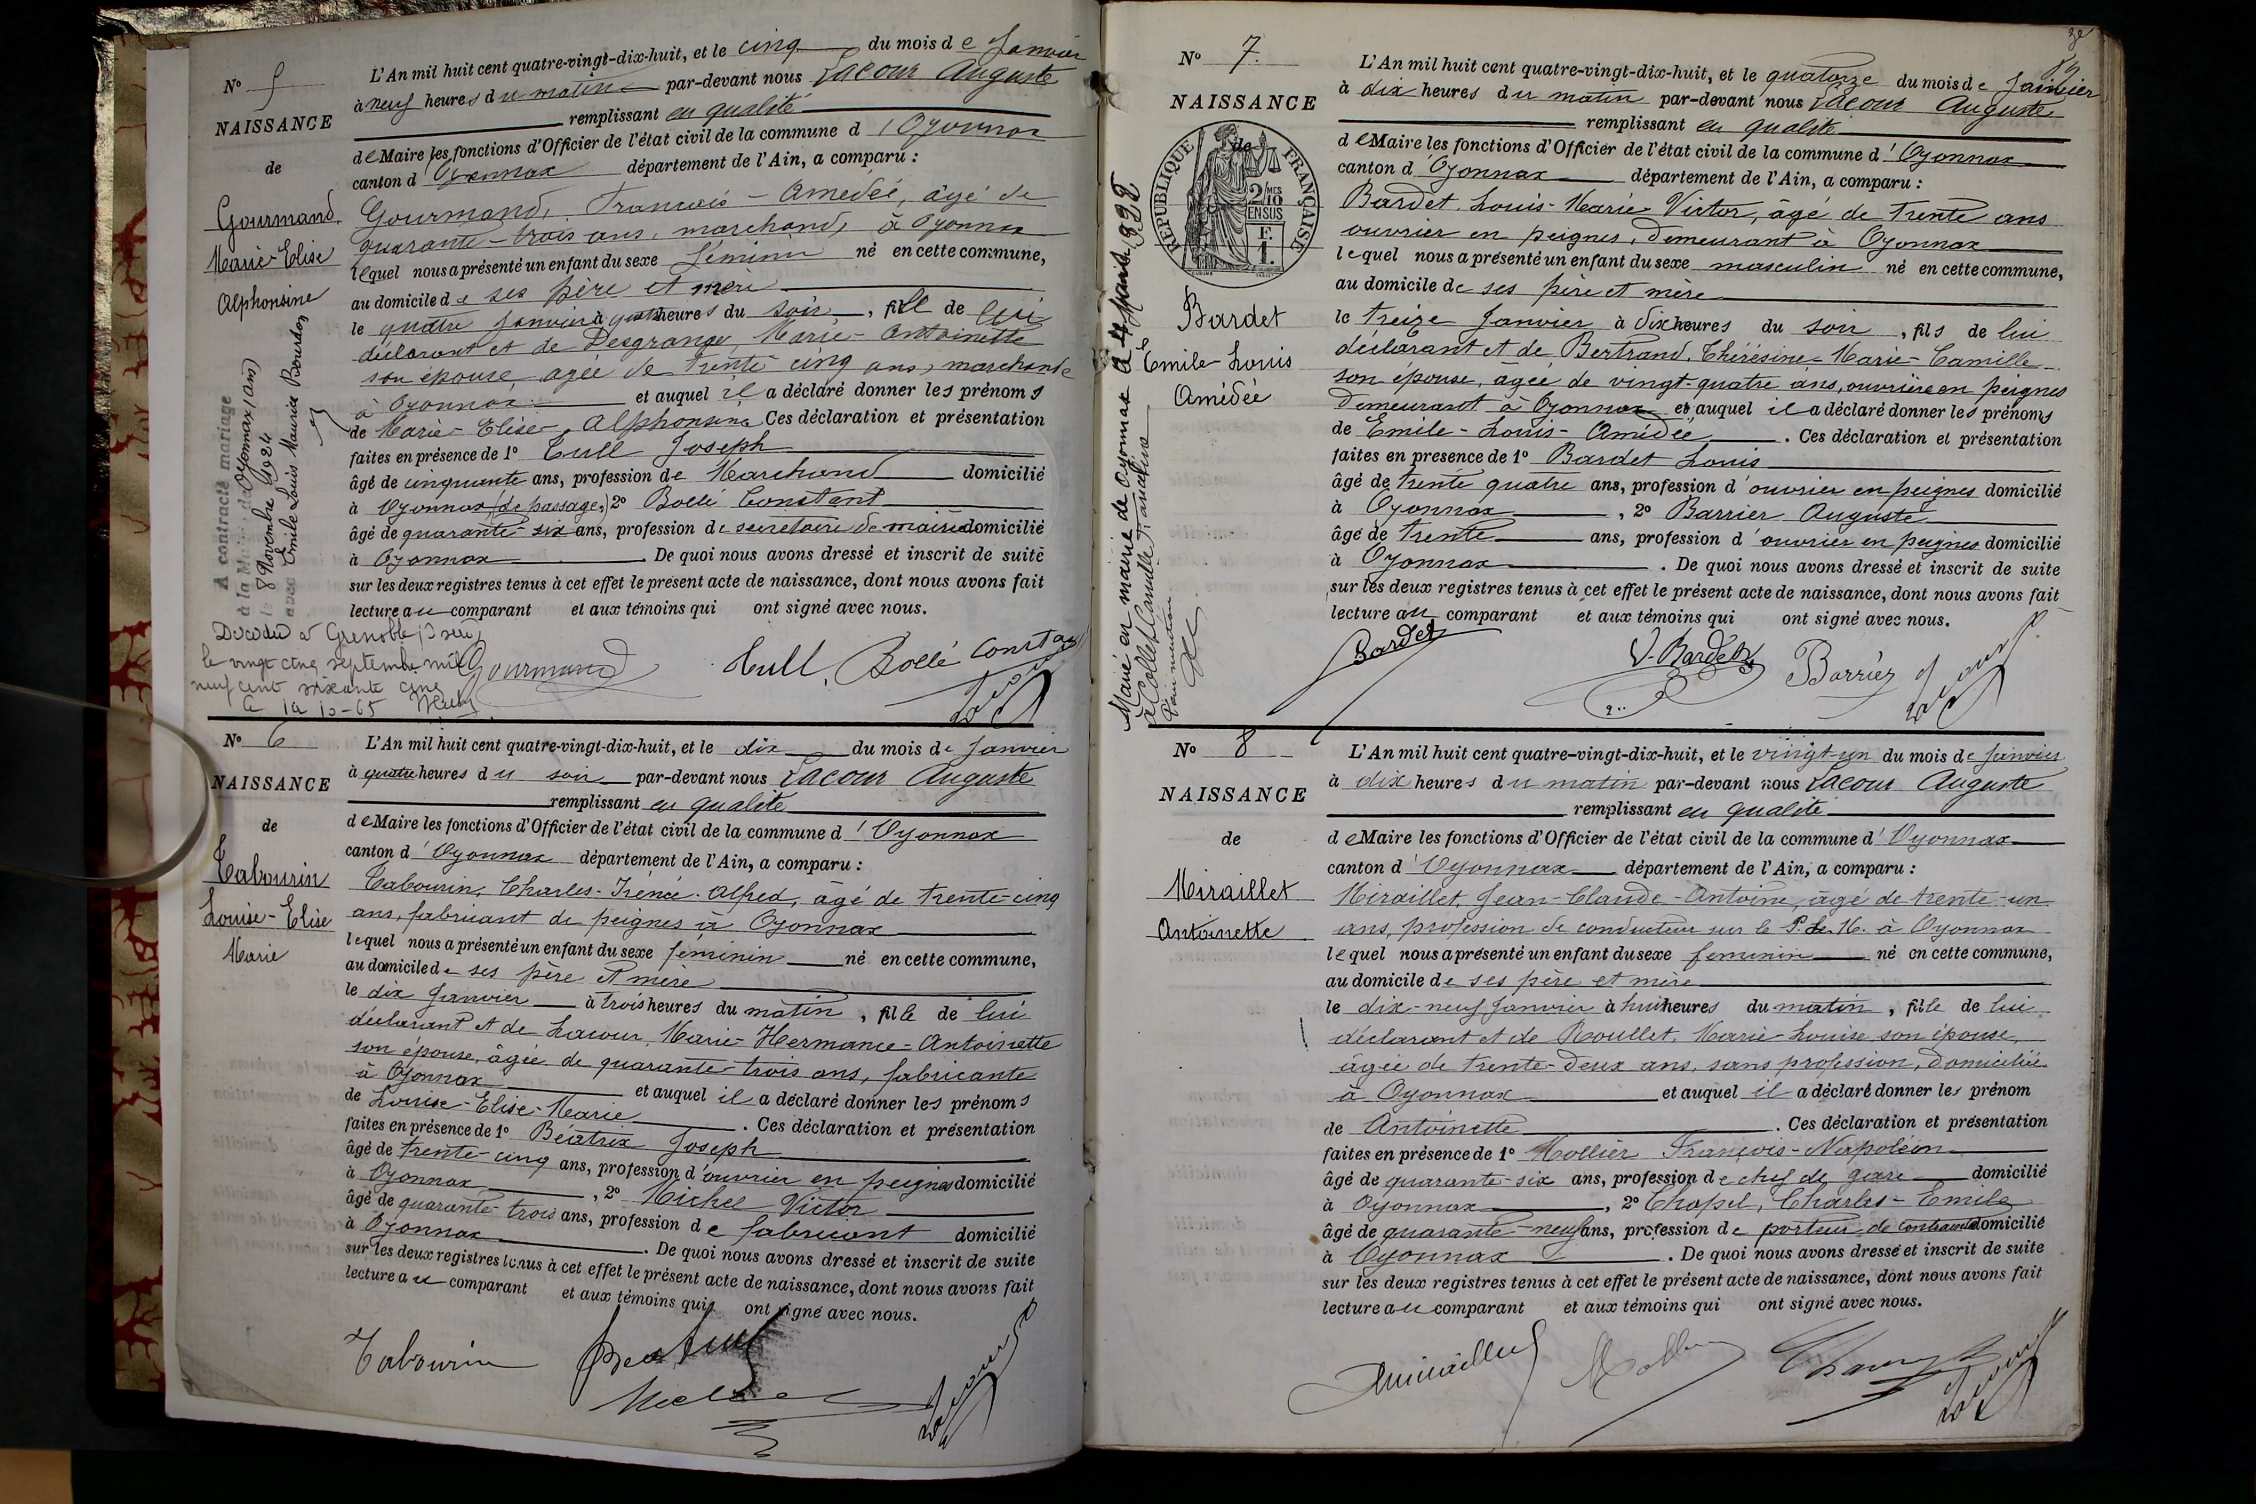 N° 5
NAISSANCE
de
Gourmand
Marie-Elise
Alphonsine
A contracté mariage
à la Mairie de Oyonnax (Ain)
le 8 Novembre 1924
avec Emile Louis Maurice Bourdon
Décédée à Grenoble, Isère,
le vingt cinq septembre mil
neuf cent soixante cinq
L'An mil huit cent quatre-vingt-dix-huit, et le cinq du mois de Janvier
à neuf heures du matin par-devant nous Lacour Auguste
remplissant en qualité
de Maire les fonctions d'Officier de l'état civil de la commune d'Oyonnax
canton d'Oyonnax département de l'Ain, a comparu :
Gourmand, François-Amédée, âgé de
quarante-trois ans, marchand, à Oyonnax
lequel nous a présenté un enfant du sexe féminin né en cette commune,
au domicile de ses père et mère
le quatre Janvier à quatre heures du soir, fille de lui
déclarant et de Desgrange, Marie-Antoinette
son épouse, agée de trente cinq ans, marchande
à Oyonnax et auquel il a déclaré donner les prénoms
de Marie-Elise-Alphonsine Ces déclaration et présentation
faites en présence de 1° Tull Joseph
âgé de cinquante ans, profession de Marchand domicilié
à Oyonnax (de passage,) 2° Bollé Constant
âgé de quarante-six ans, profession de secrétaire de mairie domicilié
à Oyonnax . De quoi nous avons dressé et inscrit de suite
sur les deux registres tenus à cet effet le présent acte de naissance, dont nous avons fait
lecture au comparant et aux témoins qui ont signé avec nous.
Gourmand Tull Bollé Constant
Lacour
N° 6
NAISSANCE
de
Tabourin
Louise-Elise
Marie
L'An mil huit cent quatre-vingt-dix-huit, et le dix du mois de Janvier
à quatre heures du soir par-devant nous Lacour Auguste
remplissant en qualité
de Maire les fonctions d'Officier de l'état civil de la commune d'Oyonnax
canton d'Oyonnax département de l'Ain, a comparu :
Tabourin, Charles-Irénée-Alfred, âgé de trente-cinq
ans, fabricant de peignes à Oyonnax
lequel nous a présenté un enfant du sexe féminin né en cette commune,
au domicile de ses père et mère
le dix Janvier à trois heures du matin, fille de lui
déclarant et de Lacour, Marie-Hermance-Antoinette
son épouse, âgée de quarante-trois ans, fabricante
à Oyonnax et auquel il a déclaré donner les prénoms
de Louise-Elise-Marie . Ces déclaration et présentation
faites en présence de 1° Béatrix Joseph
âgé de trente-cinq ans, profession d'ouvrier en peignes domicilié
à Oyonnax , 2° Michel Victor
âgé de quarante-trois ans, profession de fabricant domicilié
à Oyonnax . De quoi nous avons dressé et inscrit de suite
sur les deux registres tenus à cet effet le présent acte de naissance, dont nous avons fait
lecture au comparant et aux témoins qui ont signé avec nous.
Tabourin Béatrix
Michel Lacour
N° 7.
NAISSANCE
de
RÉPUBLIQUE FRANÇAISE
2/10 MES
EN SUS
F.
1.
Bardet
Emile-Louis
Amédée
Marié en mairie de Oyonnax le 4 Mars 1922
à Collet Camille Francine
L'An mil huit cent quatre-vingt-dix-huit, et le quatorze du mois de Janvier
à dix heures du matin par-devant nous Lacour Auguste
remplissant en qualité
de Maire les fonctions d'Officier de l'état civil de la commune d'Oyonnax
canton d'Oyonnax département de l'Ain, a comparu :
Bardet, Louis-Marie-Victor, âgé de trente ans
ouvrier en peignes, demeurant à Oyonnax
lequel nous a présenté un enfant du sexe masculin né en cette commune,
au domicile de ses père et mère
le treize Janvier à dix heures du soir, fils de lui
déclarant et de Bertrand, Thérésine-Marie-Camille
son épouse, âgée de vingt-quatre ans, ouvrière en peignes
demeurant à Oyonnax et auquel il a déclaré donner les prénoms
de Emile-Louis-Amédée . Ces déclaration et présentation
faites en présence de 1° Bardet Louis
âgé de trente quatre ans, profession d'ouvrier en peignes domicilié
à Oyonnax , 2° Barrier Auguste
âgé de trente ans, profession d'ouvrier en peignes domicilié
à Oyonnax . De quoi nous avons dressé et inscrit de suite
sur les deux registres tenus à cet effet le présent acte de naissance, dont nous avons fait
lecture au comparant et aux témoins qui ont signé avec nous.
Bardet V. Bardet Barrier Lacour
N° 8
NAISSANCE
de
Miraillet
Antoinette
L'An mil huit cent quatre-vingt-dix-huit, et le vingt-un du mois de Janvier
à dix heures du matin par-devant nous Lacour Auguste
remplissant en qualité
de Maire les fonctions d'Officier de l'état civil de la commune d'Oyonnax
canton d'Oyonnax département de l'Ain, a comparu :
Miraillet, Jean-Claude-Antoine, âgé de trente-un
ans, profession de conducteur sur le à Oyonnax
lequel nous a présenté un enfant du sexe féminin né en cette commune,
au domicile de ses père et mère
le dix-neuf Janvier à huit heures du matin, fille de lui
déclarant et de Roullet, Marie-Louise son épouse,
âgée de trente-deux ans, sans profession, domiciliée
à Oyonnax et auquel il a déclaré donner les prénom
de Antoinette . Ces déclaration et présentation
faites en présence de 1° Mollier François-Napoléon
âgé de quarante-six ans, profession de chef de gare domicilié
à Oyonnax , 2° Chapel, Charles-Emile
âgé de quarante-neuf ans, profession de porteur de contraintes domicilié
à Oyonnax . De quoi nous avons dressé et inscrit de suite
sur les deux registres tenus à cet effet le présent acte de naissance, dont nous avons fait
lecture au comparant et aux témoins qui ont signé avec nous.
Miraillet Mollier Lacour